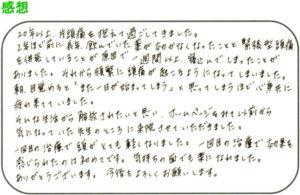 感想
20年以上、片頭痛を抱えて過ごしてきました。
2年ほど前に長年飲んでいた薬が効かなくなったことと緊張型頭痛
を併発していることが原因で一週間以上寝込んでしまったことが
ありました。それから頻繁に頭痛が起こるようになってしまいました。
朝、目覚めると「また一日が始まってしまう」と思ってしまうほど心身共に
疲れ果てていました。
それな生活から解放されたいと思い、ホームページをみて以前から
気になっていた先生のところに来院させていただきました。
一回目の治療で頭がとても軽くなりました。一回目の治療で効果を
感じられたのは初めてです。気持ちの面でも楽になれました。
ありがとうございます。今後もよろしくお願いします。